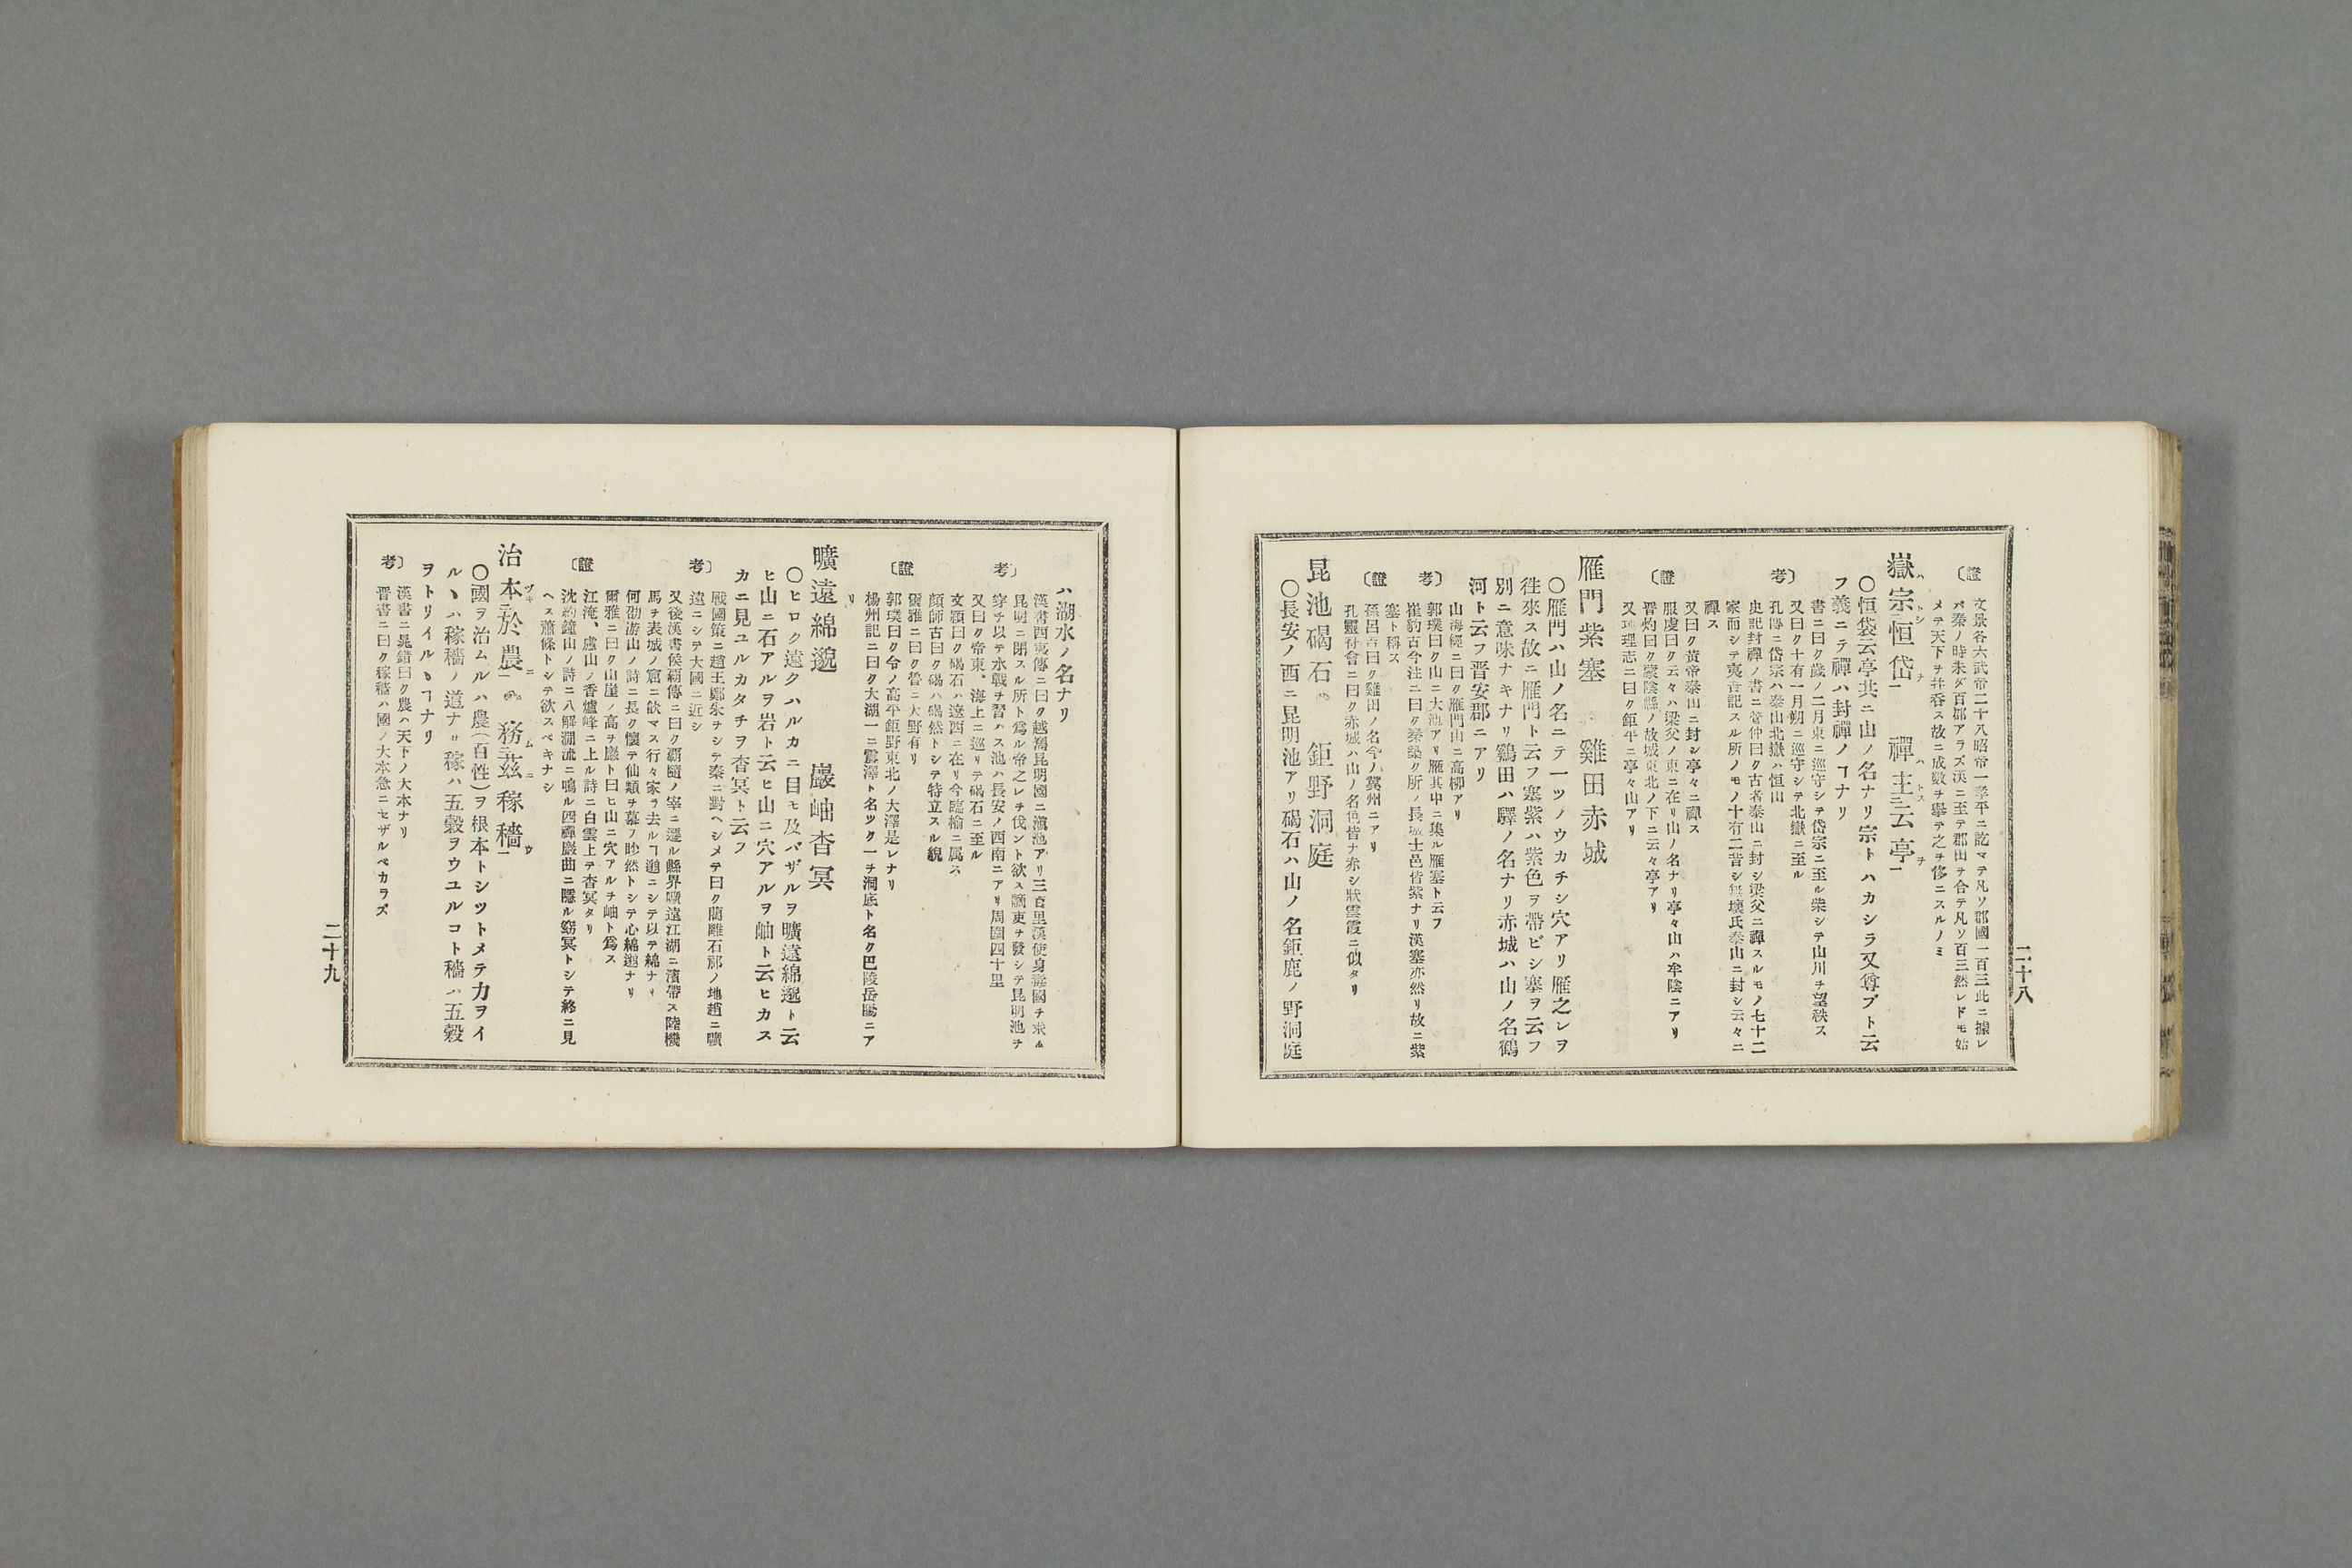 〔證
文景各六武帝二十八昭帝一孝平ニ訖マテ凡ソ郡國一百三此ニ據レ
バ秦ノ時未ダ百郡アラズ漢ニ至テ郡田ヲ合テ凡ソ百三然レドモ始
メテ天下ヲ并呑ス故ニ成數ヲ擧テ之ヲ侈ニスルノミ
嶽宗恒岱 禪主云亭
〇恒袋云亭共ニ山ノ名ナリ宗トハカシラ又尊ブト云
フ義ニテ禪ハ封禪ノヿナリ
書ニ曰ク歲ノ二月東ニ巡守シテ岱宗ニ至ル柴シテ山川ヲ望秩ス
又曰ク十有一月朔ニ巡守シテ北嶽ニ至ル
考〕
孔傳ニ岱宗ハ泰山北嶽ハ恒山
史記封禪ノ書ニ菅仲曰ク古者泰山ニ封シ梁父ニ禪スルモノ七十二
家而シテ夷吾記スル所ノモノ十有二昔シ無壞氏泰山ニ封シ云々ニ
禪ス
又曰ク黃帝泰山ニ封シ亭々ニ禪ス
〔證
服虔曰ク云々ハ梁父ノ東ニ在リ山ノ名ナリ亭々山ハ牟陰ニアリ
晋灼曰ク蒙陰縣ノ故城東北ノ下ニ云々亭アリ
又地理志ニ曰ク鉅平ニ亭々山アリ
雁門紫塞 雞田赤城
〇雁門ハ山ノ名ニテ一ツノウカチシ穴アリ雁之レヲ
徃來ス故ニ雁門ト云フ塞紫ハ紫色ヲ帶ビシ塞ヲ云フ
別ニ意味ナキナリ鷄田ハ驛ノ名ナリ赤城ハ山ノ名鶴
河ト云フ晋安郡ニアリ
山海經ニ曰ク雁門山ニ高柳アリ
考〕
郭璞曰ク山ニ大池アリ雁其中ニ集ル雁塞ト云フ
崔豹古今注ニ曰ク秦築ク所ノ長城士邑皆紫ナリ漢塞亦然リ故ニ紫
塞ト稱ス
〔證
孫呂吉曰ク雞田ノ名今ノ冀州ニアリ
孔靈符會ニ曰ク赤城ハ山ノ名色皆ナ赤シ狀雲霞ニ似タリ
昆池碣石 鉅野洞庭
〇長安ノ西ニ昆明池アリ碣石ハ山ノ名鉅鹿ノ野洞庭
二十八
ハ湖水ノ名ナリ
漢書西夷傳ニ曰ク越嶲昆明國ニ滇池アリ三百里漢使身毒國ヲ求ム
昆明ニ閉スル所ト爲ル帝之レヲ伐ント欲ス謫吏ヲ發シテ昆明池ヲ
考〕
穿チ以テ水戰ヲ習ハス池ハ長安ノ西南ニアリ周圍四十里
又曰ク帝東、海上ニ巡リテ碣石ニ至ル
文穎曰ク碣石ハ遼西ニ在リ今臨榆ニ属ス
顏師古曰ク碣ハ碣然トシテ特立スル貌
爾雅ニ曰ク魯ニ大野有リ
〔證
郭璞曰ク今ノ高平鉅野東北ノ大澤是レナリ
楊州記ニ曰ク大湖一ニ震澤ト名ツク一チ洞底ト名ク巴陵岳陽ニア
リ
曠遠綿邈 巖岫杳冥
〇ヒロク遠クハルカニ目モ及バザルヲ曠遠綿邈ト云
ヒ山ニ石アルヲ岩ト云ヒ山ニ穴アルヲ岫ト云ヒカス
カニ見ユルカタチヲ杳冥ト云フ
戰國策ニ趙王鄭朱ヲシテ秦ニ對ヘシメテ曰ク藺離石祁ノ地趙ニ曠
考〕
遠ニシテ大國ニ近シ
又後漢書侯覇傳ニ曰ク覇隨ノ宰ニ遷ル縣界曠遠江湖ニ濱帶ス陸機
馬ヲ表城ノ窟ニ飮マス行々家ヲ去ルヿ邈ニシテ以テ綿ナリ
何劭游山ノ詩ニ長ク懷テ仙類ヲ慕フ眇然トシテ心綿邈ナリ
爾雅ニ曰ク山崖ノ高ヲ巖ト曰ヒ山ニ穴アルヲ岫ト爲ス
〔證
江淹、盧山ノ香爐峰ニ上ル詩ニ白雲上テ杳冥タリ
沈約鐘山ノ詩ニ八解澗流ニ鳴ル四禪巖曲ニ隱ル窈冥トシテ終ニ見
ヘス蕭條トシテ欲スベキナシ
治本於農 務茲稼穡
〇國ヲ治ムルハ農(百性)ヲ根本トシツトメテ力ヲイ
ルヽハ稼穡ノ道ナリ稼ハ五穀ヲウユルコト穡ハ五穀
ヲトリイルヽヿナリ
考〕
漢書ニ晁錯曰ク農ハ天下ノ大本ナリ
晋書ニ曰ク稼穡ハ國ノ大本急ニセザルベカラズ
二十九